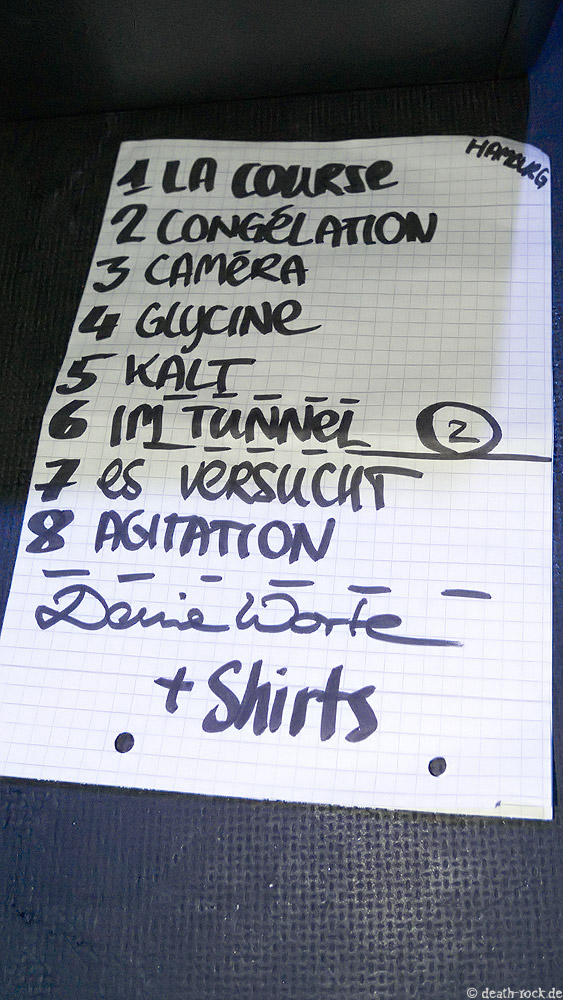 HAMBURG
1 LA COURSE
2 CONGÉLATION
3 CAMÉRA
4 GLYCINE
5 KALT
6 IM TUNNEL 2
7 ES VERSUCHT
8 AGITATION
Deine Worte
+ Shirts
© death-rock.de